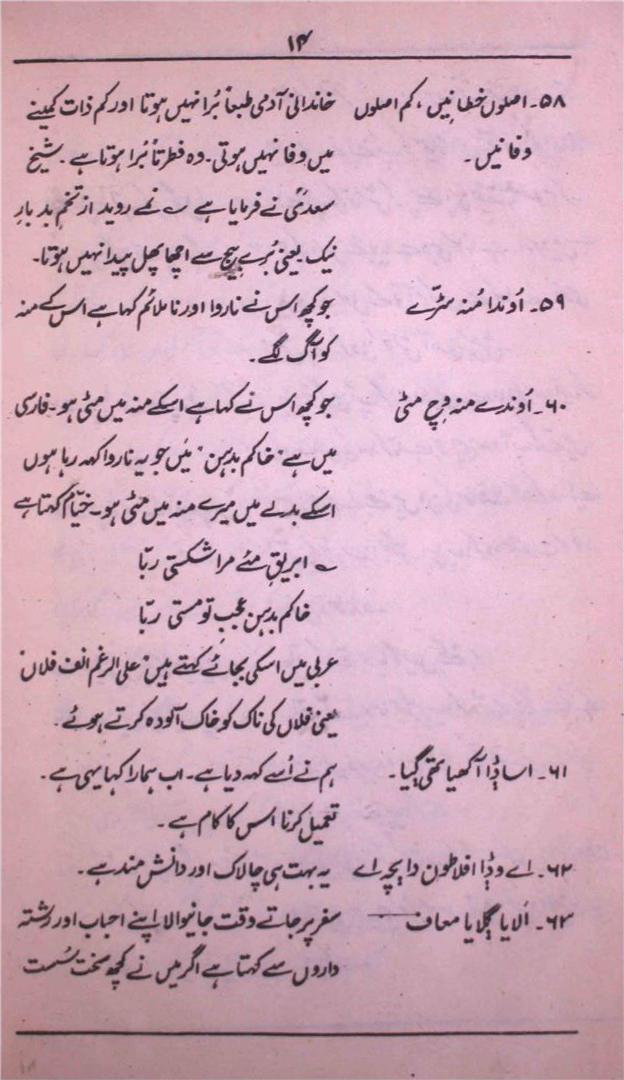 ۱۴
۵۸۔ اصلوں خطا نیں، کم اصلوں خاندانی آدمی طبعاً بُرا نہیں ہوتا اور کم ذات کمینے
وفا نیں۔ میں وفا نہیں ہوتی۔ وہ فطرتاً بُرا ہوتا ہے۔ شیخ
سعدیؒ نے فرمایا ہے ؎ نمے روید از تخمِ بد بارِ
نیک۔ یعنی بُرے بیج سے اچھا پھل پیدا نہیں ہوتا۔
۵۹۔ اُوندا مُنہ سڑے جو کچھ اس نے ناروا اور ناملائم کہا ہے اس کے منہ
کو آگ لگے۔
۶۰۔ اُوندے منہ وِچ مٹی جو کچھ اس نے کہا ہے اسکے منہ میں مٹی ہو۔ فارسی
میں ہے "خاکم بدہن" میں جو یہ ناروا کہہ رہا ہوں
اسکے بدلے میں میرے منہ میں مٹی ہو۔ خیّام کہتا ہے
؎ ابریقِ مئے مرا شکستی ربّا
خاکم بدہن عجب تو مستی ربّا
عربی میں اسکی بجائے کہتے ہیں "علی الرغم انف فلان"
یعنی فلاں کی ناک کو خاک آلودہ کرتے ہوئے۔
۶۱۔ اساڈا آکھیا تھی گیا۔ ہم نے اُسے کہہ دیا ہے۔ اب ہمارا کہا یہی ہے۔
تعمیل کرنا اس کا کام ہے۔
۶۲۔ اے وڈا افلاطون دا بچہ اے یہ بہت ہی چالاک اور دانش مند ہے۔
۶۳۔ اَلایا گلایا معاف سفر پر جاتے وقت جانیوالا اپنے احباب اور رشتہ
داروں سے کہتا ہے اگر میں نے کچھ سخت سُست